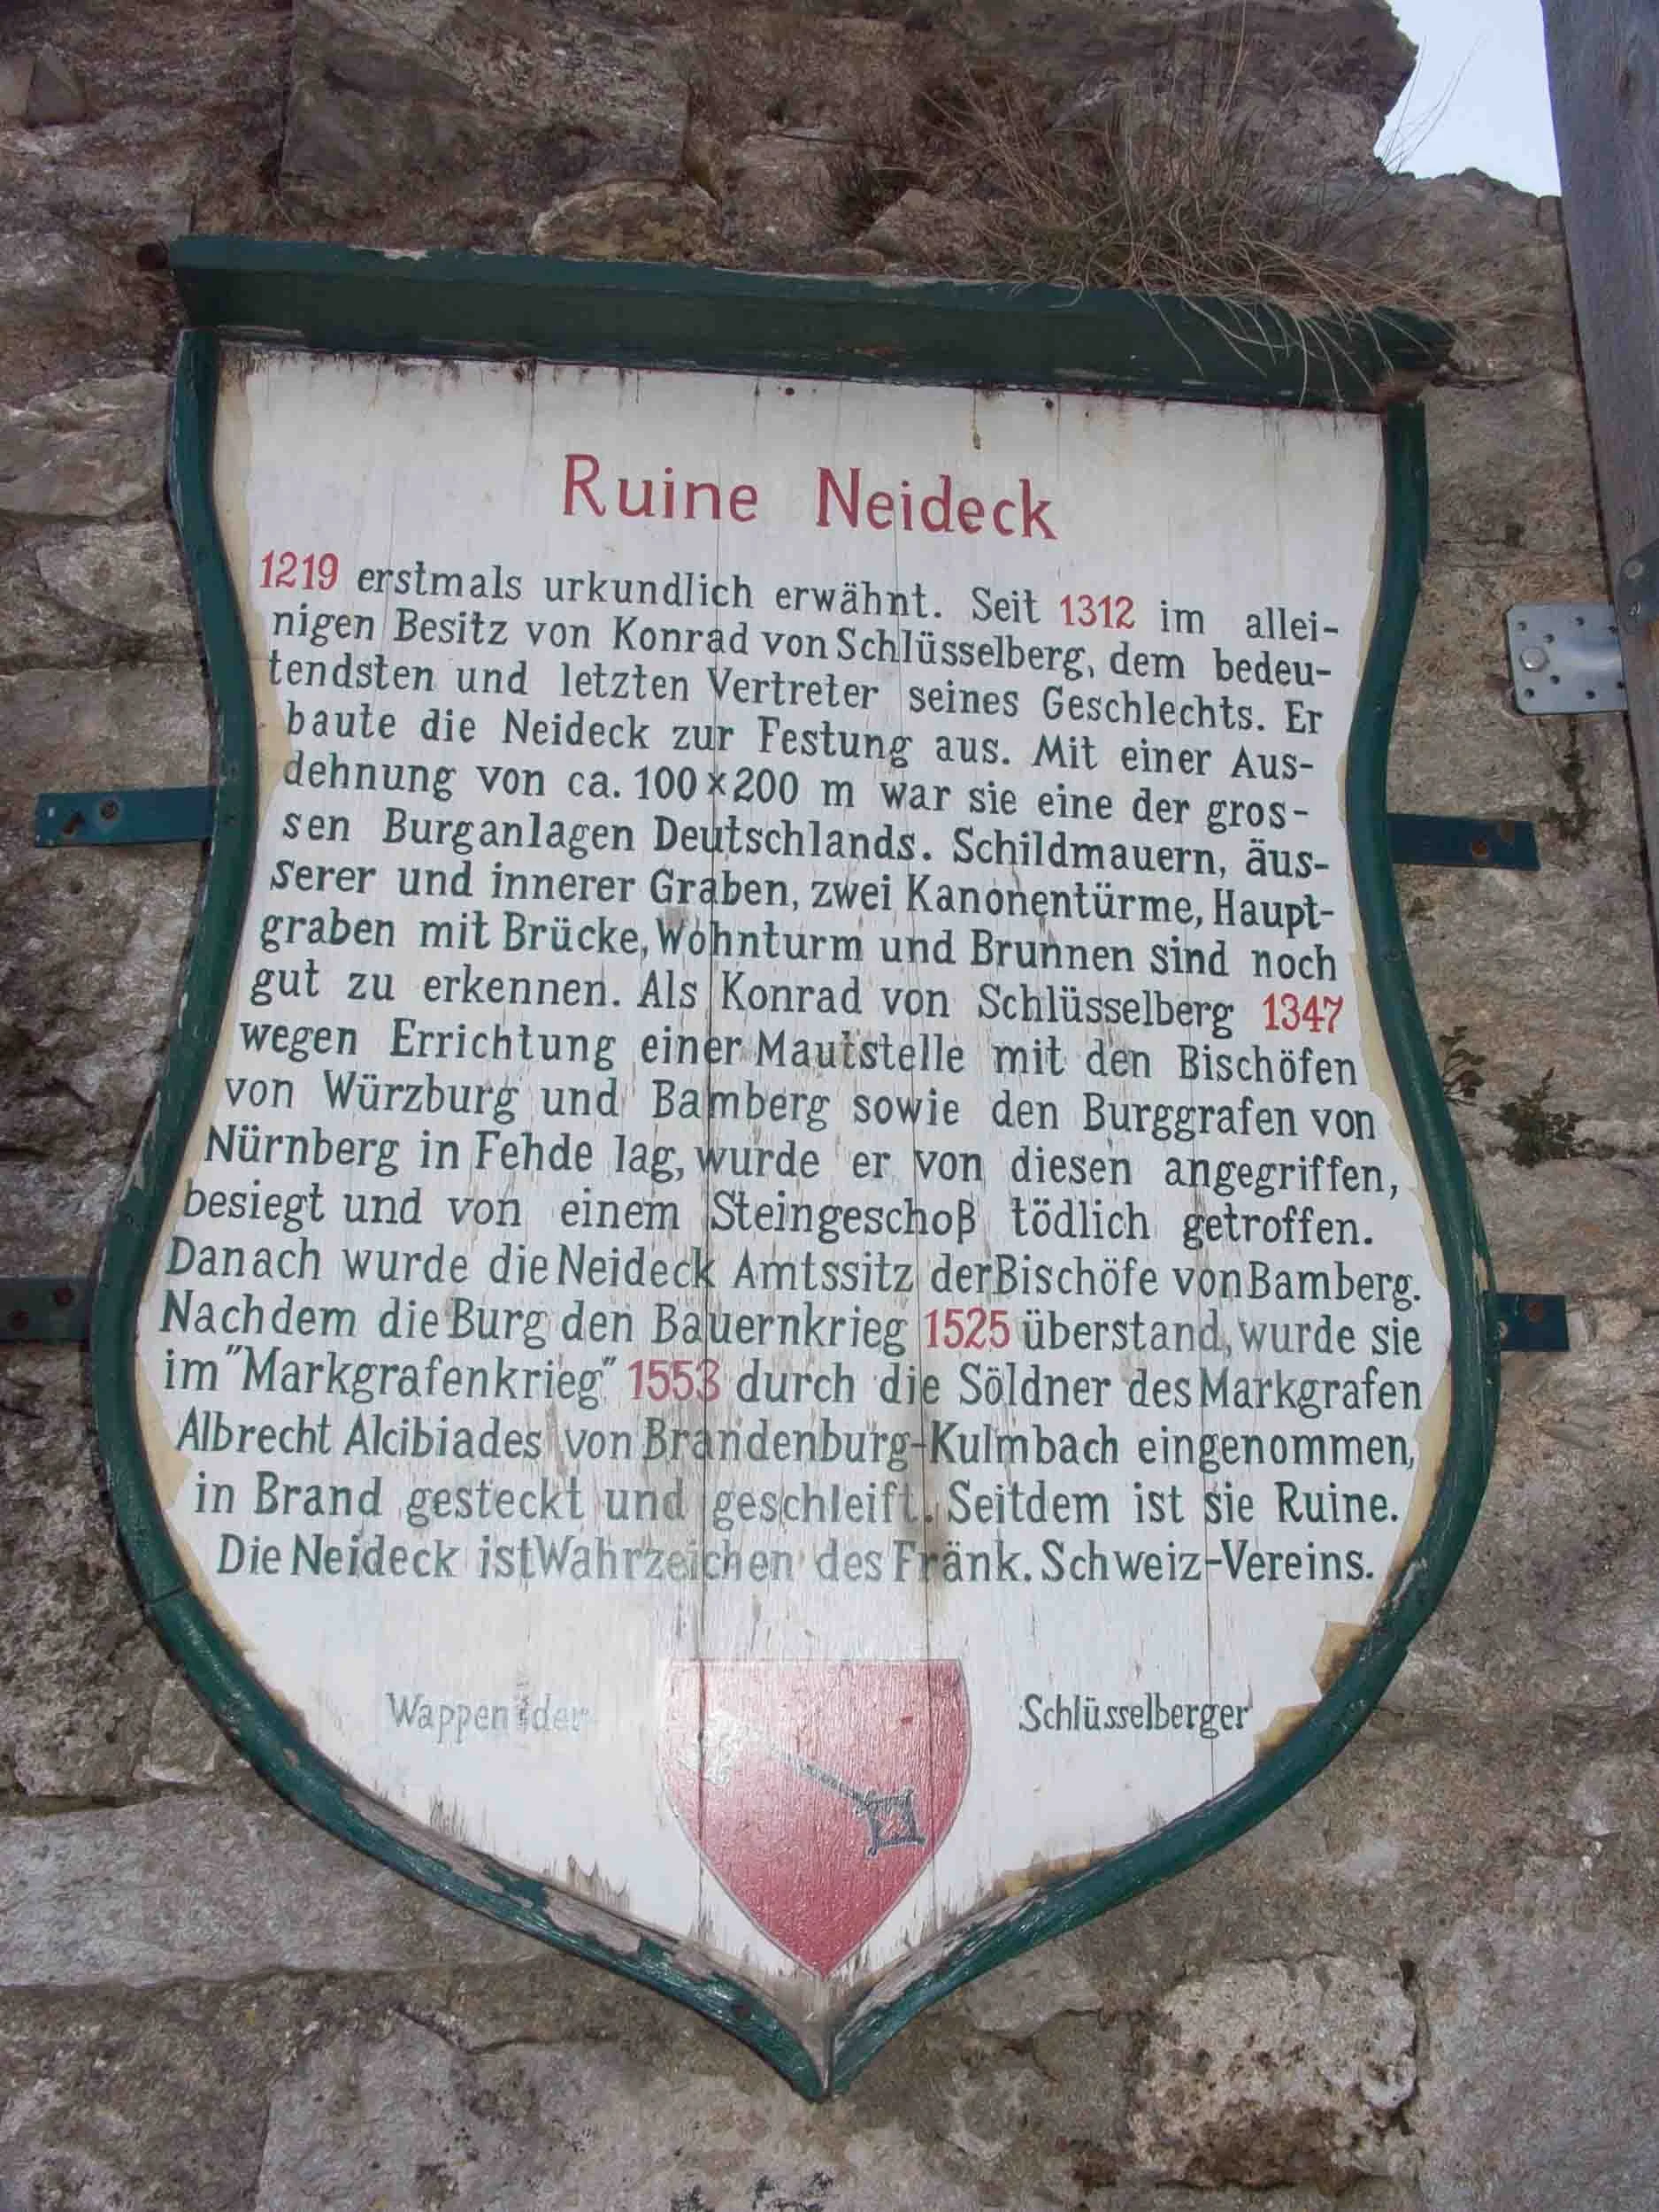 Ruine Neideck
1219 erstmals urkundlich erwähnt. Seit 1312 im allei-
nigen Besitz von Konrad von Schlüsselberg, dem bedeu-
tendsten und letzten Vertreter seines Geschlechts. Er
baute die Neideck zur Festung aus. Mit einer Aus-
dehnung von ca. 100 x 200 m war sie eine der gros-
sen Burganlagen Deutschlands. Schildmauern, äus-
serer und innerer Graben, zwei Kanonentürme, Haupt-
graben mit Brücke, Wohnturm und Brunnen sind noch
gut zu erkennen. Als Konrad von Schlüsselberg 1347
wegen Errichtung einer Mautstelle mit den Bischöfen
von Würzburg und Bamberg sowie den Burggrafen von
Nürnberg in Fehde lag, wurde er von diesen angegriffen,
besiegt und von einem Steingeschoß tödlich getroffen.
Danach wurde die Neideck Amtssitz der Bischöfe von Bamberg.
Nachdem die Burg den Bauernkrieg 1525 überstand, wurde sie
im "Markgrafenkrieg" 1553 durch die Söldner des Markgrafen
Albrecht Alcibiades von Brandenburg-Kulmbach eingenommen,
in Brand gesteckt und geschleift. Seitdem ist sie Ruine.
Die Neideck ist Wahrzeichen des Fränk. Schweiz-Vereins.
Wappen der Schlüsselberger